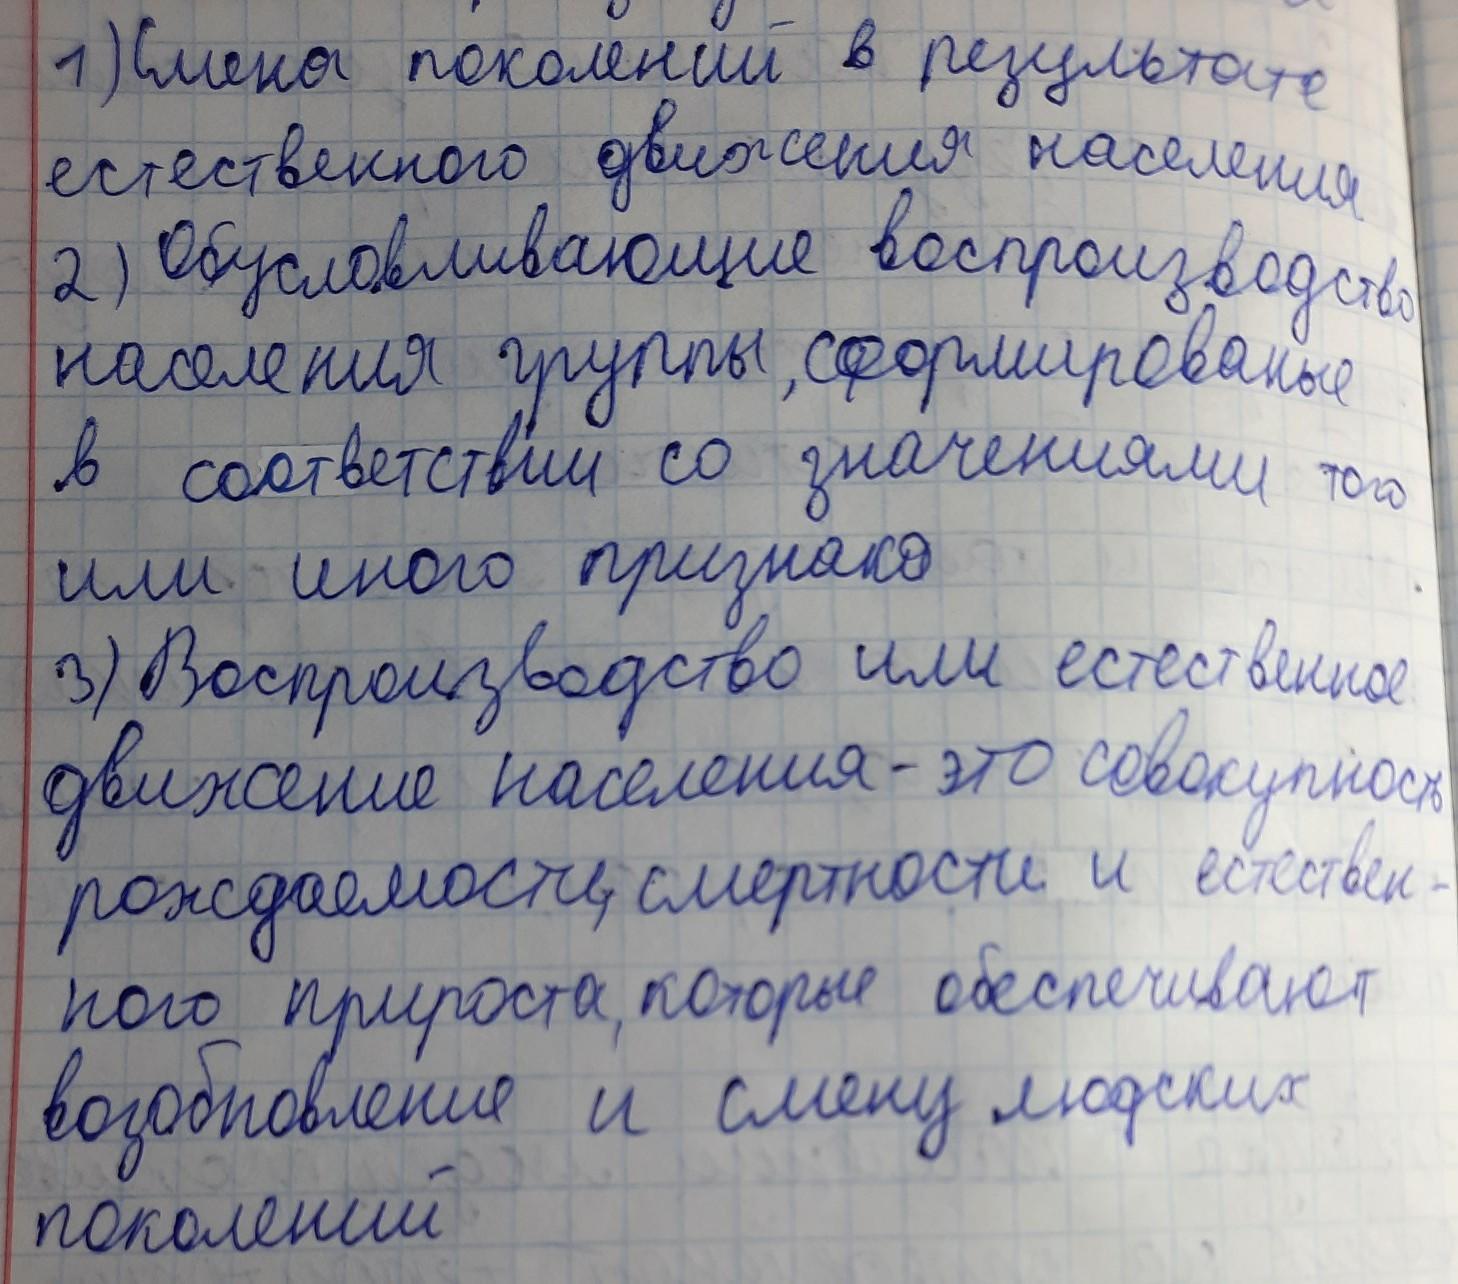 1) Смена поколений в результате
естественного движения населения
2) Обусловливающие воспроизводство
населения группы, сформированые
в соответствии со значениями того
или иного признака
3) Воспроизводство или естественное
движение населения - это совокупность
рождаемости, смертности и естествен-
ного прироста, которые обеспечивают
возобновление и смену людских
поколений